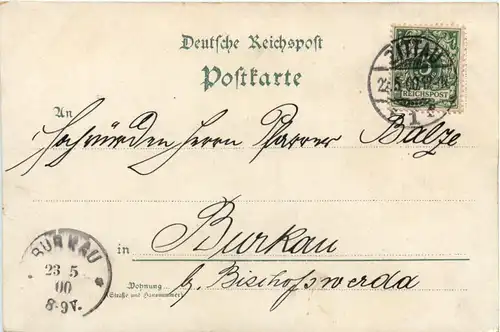 Deutsche Reichspost
Postkarte
ZITTAU
5
REICHSPOST
1
An
Hochwürden Herrn Pfarrer Balze
in Burkau
b. Bischofswerda
Wohnung
(Straße und Hausnummer)
BURKAU
23 5
00
8-9V.